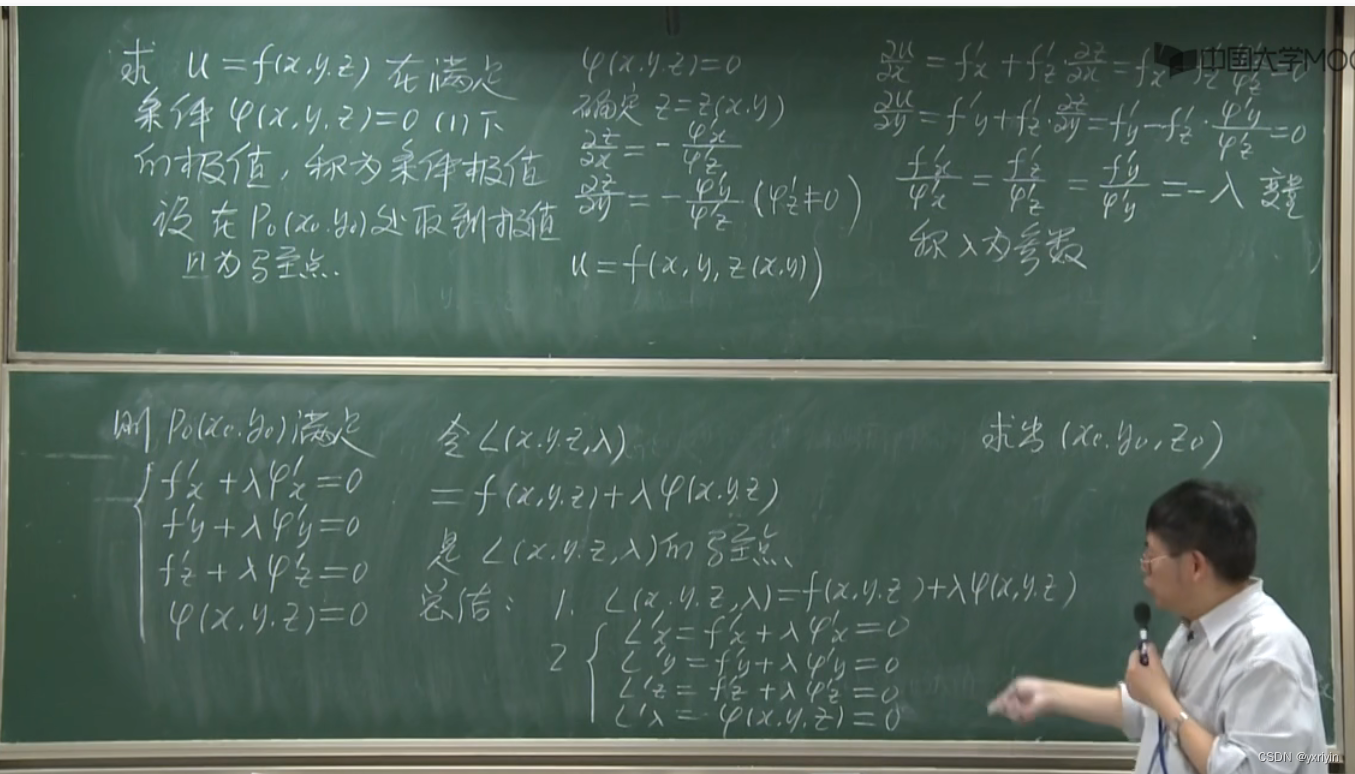 求 u=f(x,y,z) 在满足
条件 φ(x,y,z)=0 (1) 下
的极值,称为条件极值
设在P₀(x₀,y₀)处取到极值
且为驻点.
φ(x,y,z)=0
确定 z=z(x,y)
∂z/∂x = -φ'x/φ'z
∂z/∂y = -φ'y/φ'z (φ'z≠0)
u=f(x,y,z(x,y))
∂u/∂x = f'x + f'z·∂z/∂x = f'x
∂u/∂y = f'y + f'z·∂z/∂y = f'y - f'z·φ'y/φ'z = 0
f'x/φ'x = f'z/φ'z = f'y/φ'y = -λ 变量
称λ为参数
中国大学MOO
则 P₀(x₀,y₀)满足
f'x+λφ'x=0
f'y+λφ'y=0
f'z+λφ'z=0
φ(x,y,z)=0
令 L(x,y,z,λ)
=f(x,y,z)+λφ(x,y,z)
是 L(x,y,z,λ)的驻点
总结: 1. L(x,y,z,λ)=f(x,y,z)+λφ(x,y,z)
2 { L'x=f'x+λφ'x=0
L'y=f'y+λφ'y=0
L'z=f'z+λφ'z=0
L'λ=φ(x,y,z)=0
求出(x₀,y₀,z₀)
CSDN @yxriyin